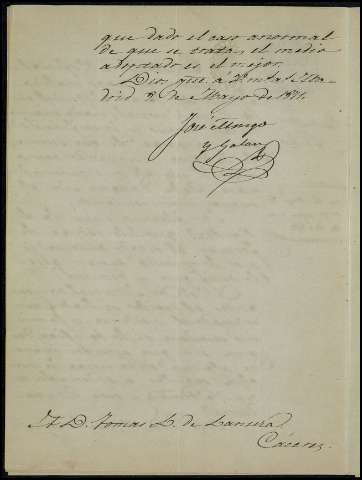 que dado el caso anormal
de que se trata, el medio
adoptado es el mejor.
Dios gue. a V. m. a.s Ma-
drid 2 de Mayo de 1871.
José
y Galan
D. Tomas de
Cáceres.